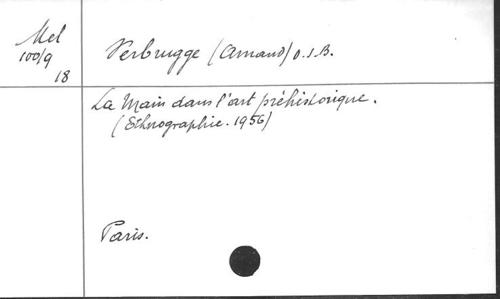 Mel
100/9
18
Verbrugge (Armand) O.S.B.
La Main dans l'art préhistorique.
(Ethnographie. 1956)
Paris.